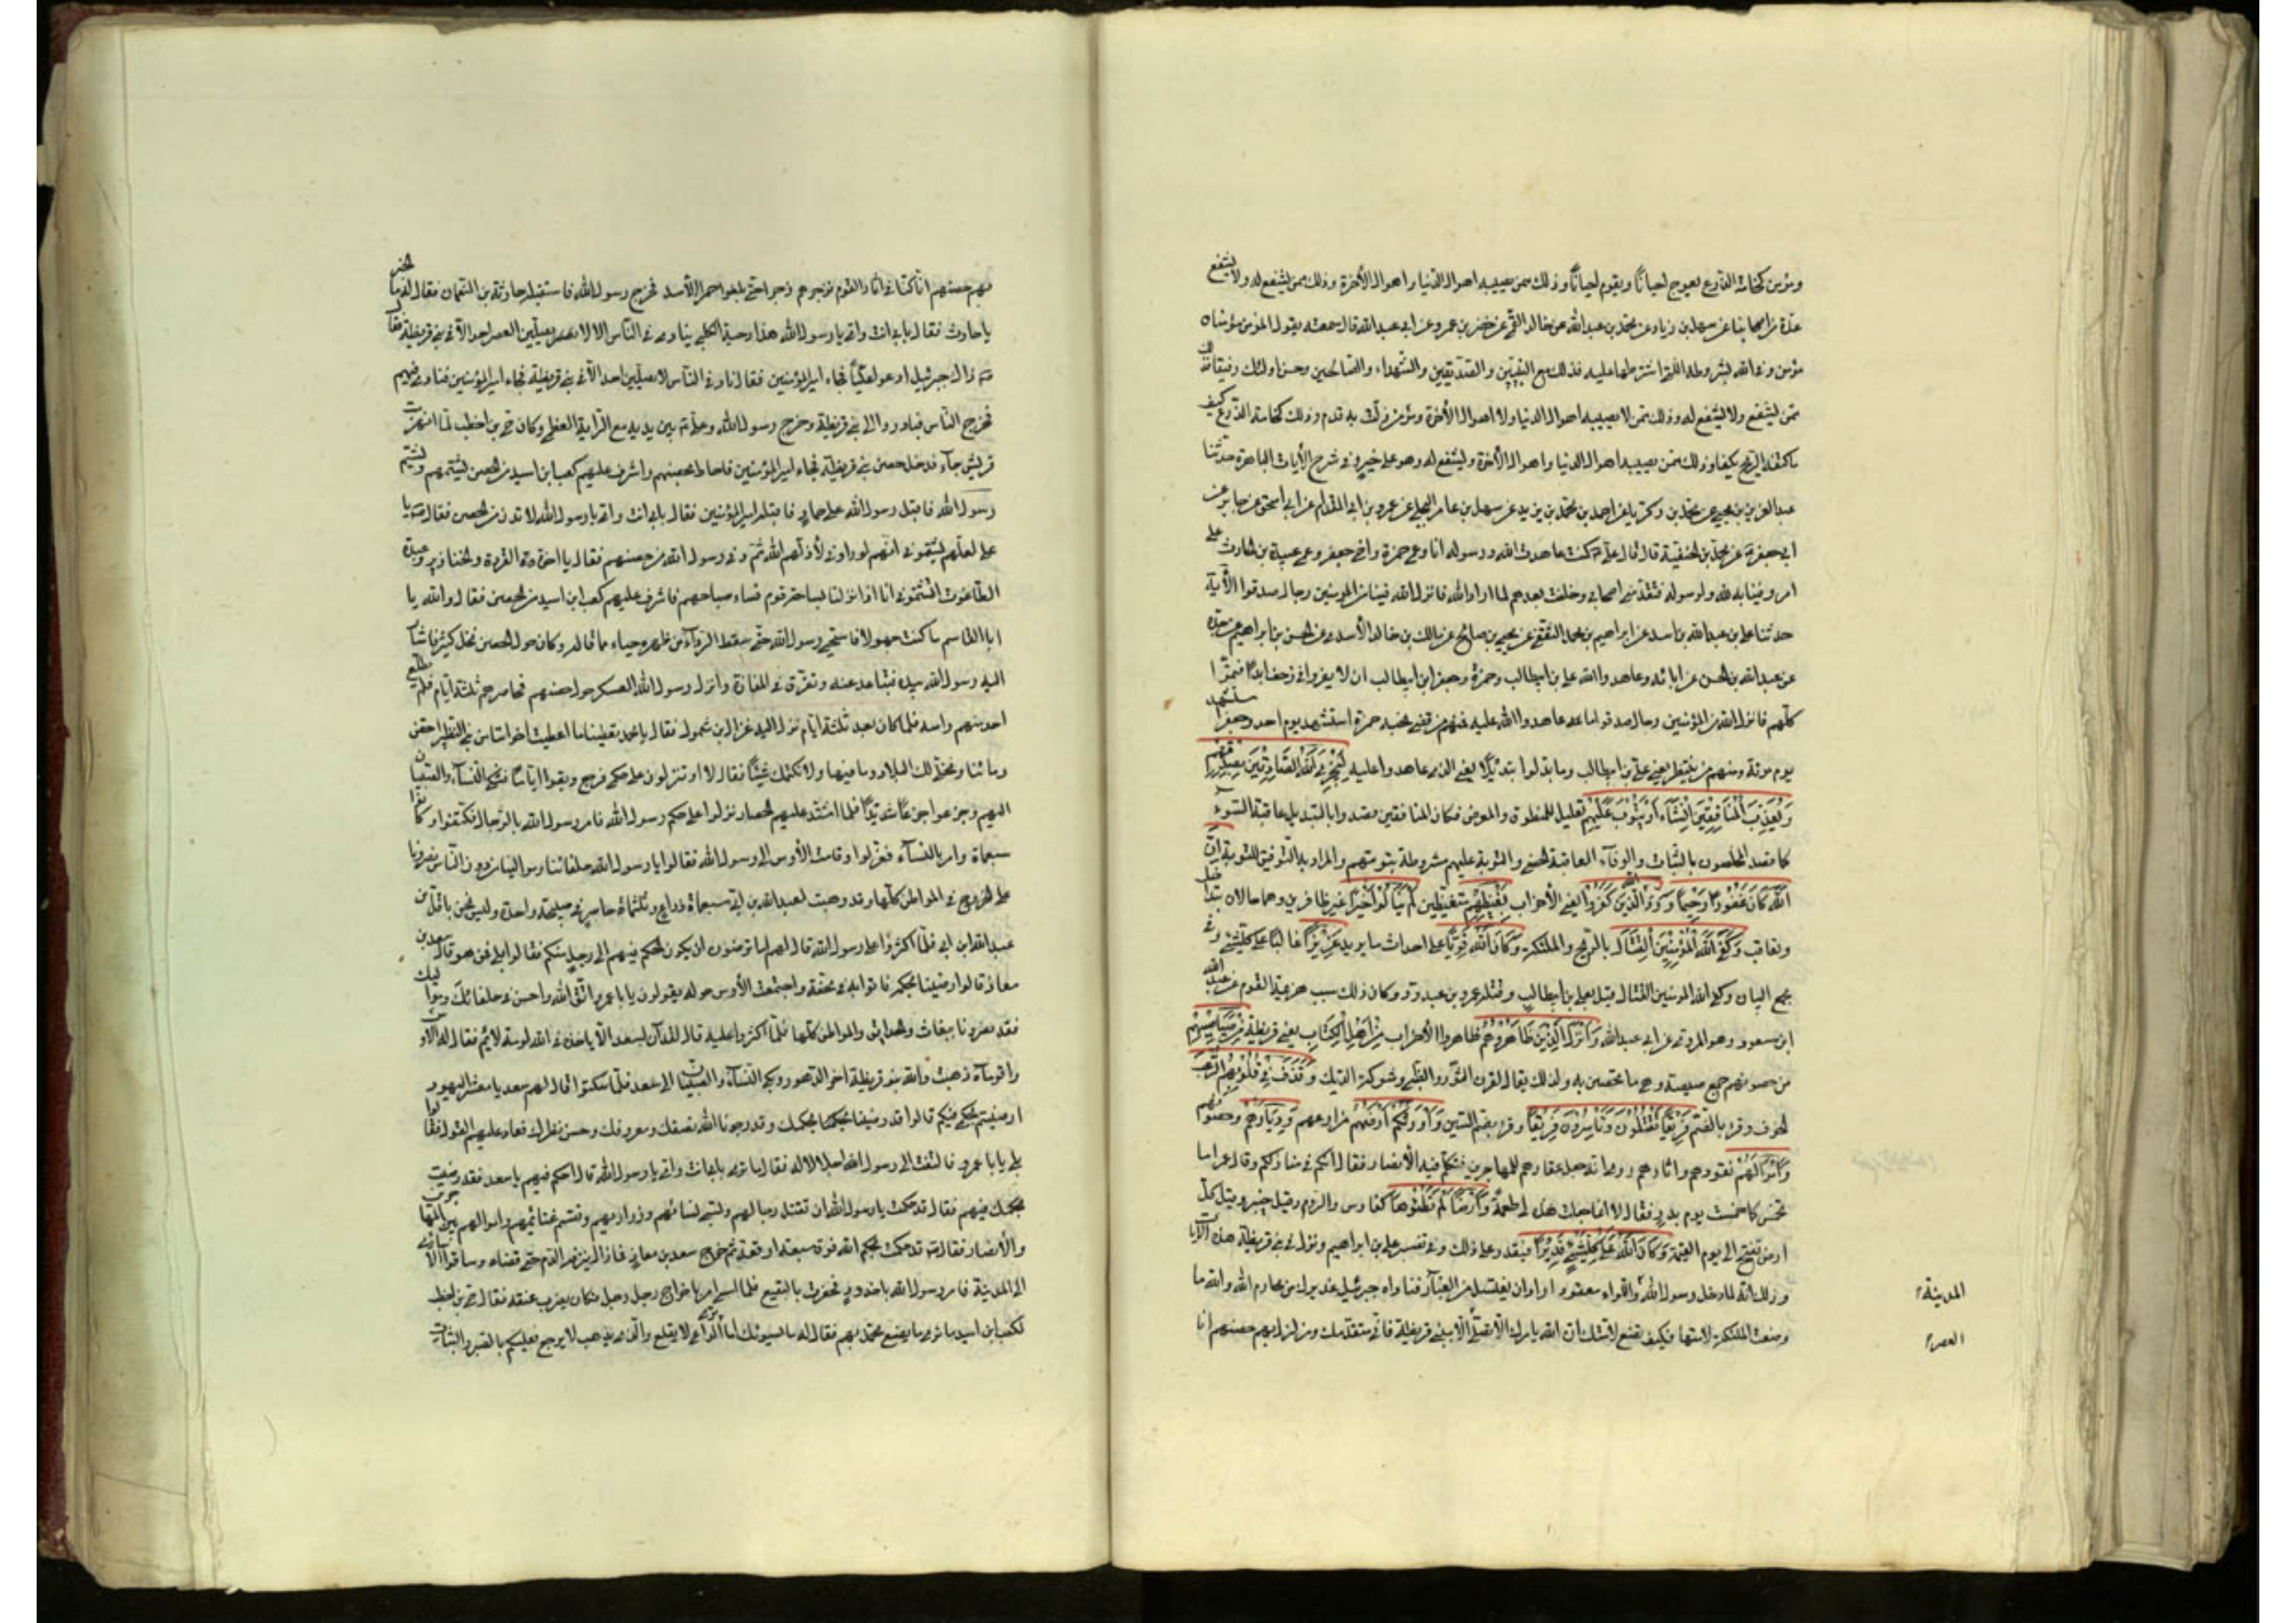 ومؤمن كخامة الزرع يعوج احيانًا ويقوم احيانًا وذلك ممن يصيبه اهوال الدنيا واهوال الآخرة وذلك ممن يشفع له ولا يشفع
عدة من اصحابنا عن سهل بن زياد عن محمد بن عبدالله عن خالد القمى عن خضر بن عمرو عن ابى عبدالله قال سمعته يقول المؤمن مؤمنان
مؤمن وفى الله بشروطه التى اشترطها عليه فذلك مع النبيين والصديقين والشهداء والصالحين وحسن اولئك رفيقا وذلك
ممن يشفع ولا يشفع له وذلك ممن لا يصيبه اهوال الدنيا ولا اهوال الآخرة ومؤمن زلت به قدم وذلك كخامة الزرع كيف
ما كفته الريح يكفا وذلك ممن يصيبه اهوال الدنيا واهوال الآخرة ويشفع له وهو على خير وفى شرح الآيات الباهرة حدثنا
عبدالعزيز بن يحيى عن محمد بن زكريا عن احمد بن محمد بن يزيد عن سهل بن عامر البجلى عن عمرو بن ابى المقدام عن ابى اسحق عن جابر عن
ابى جعفر عن محمد بن الحنفية قال قال على كنت عاهدت الله ورسوله انا وعمى حمزة واخى جعفر وعمى عبيدة بن الحارث على
امر وفينا به لله ولرسوله فتقدمنى اصحابى وخلفت بعدهم لما اراد الله فانزل الله فينا من المؤمنين رجال صدقوا الآية
حدثنا على بن عبدالله بن اسد عن ابراهيم بن محمد الثقفى عن يحيى بن صالح عن مالك بن خالد الأسدى عن الحسن بن ابراهيم عن جده
عن عبدالله بن الحسن عن ابائه وعاهدوا الله على بن ابيطالب وحمزة وجعفر ابن ابيطالب ان لا يفروا فى زحف ابدًا فتموا
كلهم فانزل الله من المؤمنين رجال صدقوا ما عاهدوا الله عليه فمنهم من قضى نحبه حمزة استشهد يوم احد وجعفر استشهد
يوم موتة ومنهم من ينتظر يعنى على بن ابيطالب وما بدلوا تبديلًا يعنى الذى عاهدوا عليه لِيَجْزِيَ اللَّهُ الصَّادِقِينَ بِصِدْقِهِمْ
وَيُعَذِّبَ الْمُنَافِقِينَ إِنْ شَاءَ أَوْ يَتُوبَ عَلَيْهِمْ تعليل للمنطوق والمعرض فكان المنافقين قصدوا بالتبديل عاقبة السوء
كما قصد المخلصون بالثبات والوفاء العاقبة الحسنى والتوبة عليهم مشروطة بتوبتهم والمراد بها التوفيق للتوبة إِنَّ
اللَّهَ كَانَ غَفُورًا رَحِيمًا وَرَدَّ اللَّهُ الَّذِينَ كَفَرُوا يعنى الأحزاب بِغَيْظِهِمْ متغيظين لَمْ يَنَالُوا خَيْرًا غير ظافرين وهما حالان بتداخل
وتعاقب وَكَفَى اللَّهُ الْمُؤْمِنِينَ الْقِتَالَ بالريح والملئكة وَكَانَ اللَّهُ قَوِيًّا على احداث ما يريد عَزِيزًا غالبًا على كل شئ وفى
مجمع البيان وكفى الله المؤمنين القتال قيل بعلى بن ابيطالب وقتله عمرو بن عبدود وكان ذلك سبب هزيمة القوم عن عبدالله
ابن مسعود وهو المروى عن ابى عبدالله وَأَنْزَلَ الَّذِينَ ظَاهَرُوهُمْ ظاهروا الأحزاب مِنْ أَهْلِ الْكِتَابِ يعنى قريظة مِنْ صَيَاصِيهِمْ
من حصونهم جمع صيصة وهى ما تحصن به ولذلك يقال لقرن الثور والظبى وشوكة الديك وَقَذَفَ فِي قُلُوبِهِمُ الرُّعْبَ
الخوف وقرئ بالضم فَرِيقًا تَقْتُلُونَ وَتَأْسِرُونَ فَرِيقًا وقرئ بضم السين وَأَوْرَثَكُمْ أَرْضَهُمْ مزارعهم وَدِيَارَهُمْ وحصونهم
وَأَمْوَالَهُمْ نقودهم واثاثهم روى انه جعل عقارهم للمهاجرين فتكلم فيه الأنصار فقال انكم فى منازلكم وقال عمر اما
تخمس كما خمست يوم بدر فقال لا انما جعلت هذه لى طعمة وَأَرْضًا لَمْ تَطَئُوهَا كفارس والروم وقيل خيبر وقيل كل
ارض تفتح الى يوم القيمة وَكَانَ اللَّهُ عَلَى كُلِّ شَيْءٍ قَدِيرًا فيقدر على ذلك وفى تفسير على بن ابراهيم ونزل فى بنى قريظة هذه الآيات
وذلك انه لما دخل رسول الله واللواء معقود اراد ان يغتسل من الغبار فناداه جبرئيل عذيرك من محارب الله والله ما
وضعت الملئكة لامتها فكيف تضع لامتك ان الله يامرك الا تصلى الا ببنى قريظة فانى متقدمك ومزلزل بهم حصنهم انا
المدينة
العصر
بهم حصنهم انا كنا فى اثار القوم نزجرهم زجرا حتى بلغوا حمراء الأسد فخرج رسول الله فاستقبله حارثة بن النعمان فقال له ما الخبر
يا حارث فقال بابى انت وامى يا رسول الله هذا دحية الكلبى ينادى فى الناس الا لا يصلين العصر احد الا فى بنى قريظة فقال
ذاك جبرئيل ادعوا عليًا فجاء اميرالمؤمنين فقال ناد فى الناس لا يصلين احد الا فى بنى قريظة فجاء اميرالمؤمنين فنادى فيهم
فخرج الناس فبادروا الى بنى قريظة وخرج رسول الله وعلى بين يديه مع الراية العظمى وكان حى بن اخطب لما انهزمت
قريش جاء فدخل حصن بنى قريظة فجاء اميرالمؤمنين فاحاط بحصنهم واشرف عليهم كعب ابن اسيد من الحصن يشتمهم ويشتم
رسول الله فاقبل رسول الله على حمار فاستقبله اميرالمؤمنين فقال بابى انت وامى يا رسول الله لا تدن من الحصن فقال يا
على لعلهم يشتمونى انهم لو راونى لأذلهم الله ثم دنى رسول الله من حصنهم فقال يا اخوة القردة والخنازير وعبدة
الطاغوت اتشتمونى انا اذا نزلنا بساحة قوم فساء صباحهم فاشرف عليهم كعب ابن اسيد من الحصن فقال والله يا
ابا القاسم ما كنت جهولا فاستحيى رسول الله حتى سقط الرداء من ظهره حياء مما قاله وكان حول الحصن نخل كثير فاشار
اليه رسول الله بيده فتباعد عنه وتفرق فى المفازة وانزل رسول الله العسكر حول حصنهم فحاصرهم ثلثة ايام فلم يطلع
احد منهم راسه فلما كان بعد ثلثة ايام نزل اليه غزال بن شمول فقال يا محمد تعطينا ما اعطيت اخواننا من بنى النظير احقن
دمائنا ونخلى لك البلاد وما فيها ولا نكتمك شيئًا فقال لا او تنزلون على حكمى فرجع وبقوا ايامًا فبكى النساء والصبيان
اليهم وجزعوا جزعًا شديدًا فلما اشتد عليهم الحصار نزلوا على حكم رسول الله فامر رسول الله بالرجال فكتفوا وكانوا
سبعماة وامر بالنساء فعزلوا وقامت الأوس الى رسول الله فقالوا يا رسول الله حلفائنا وموالينا من دون الناس نصرونا
على الخزرج فى المواطن كلها وقد وهبت لعبدالله بن ابى سبعماة دراع وثلثماة حاسر فى صبيحة واحدة وليس نحن باقل من
عبدالله ابن ابى فلما اكثروا على رسول الله قال لهم اما ترضون ان يكون الحكم فيهم الى رجل منكم فقالوا بلى فمن هو قال سعد بن
معاذ قالوا رضينا بحكمه فاتوا به فى محفة واجتمعت الأوس حوله يقولون يا ابا عمرو اتق الله واحسن فى حلفائك ومواليك
فقد نصرونا ببعاث والحدائق والمواطن كلها فلما اكثروا عليه قال لقد آن لسعد الا ياخذه فى الله لومة لائم فقال له الاوس
واقوماه ذهبت والله بنو قريظة اخر الدهر وبكى النساء والصبيان الى سعد فلما سكتوا قال لهم سعد يا معشر اليهود
ارضيتم بحكمى فيكم قالوا قد رضينا بحكمك وقد رجونا الله نصفك ومعروفك وحسن نظرك فعاد عليهم القول فقالوا
بلى يا ابا عمرو فالتفت الى رسول الله اجلالا له فقال ما ترى بابى انت وامى يا رسول الله قال احكم فيهم يا سعد فقد رضيت
بحكمك فيهم فقال قد حكمت يا رسول الله ان تقتل رجالهم وتسبى نسائهم وذراريهم وتقسم غنائمهم واموالهم بين المهاجرين
والأنصار فقال قد حكمت بحكم الله فوق سبعة ارقعة ثم انفجر جرح سعد بن معاذ فما زال ينزف الدم حتى قضاه وساقوا الاسارى
الى المدينة فامر رسول الله باخدود فحفرت بالبقيع فلما امسى امر باخراج رجل رجل فكان يضرب عنقه فقال حى بن اخطب
لكعب ابن اسيد ما ترى ما يصنع محمد بهم فقال له ما يسوئك اما ترى الداعى لا يقلع والذى يذهب لا يرجع فعليكم بالصبر والثبات